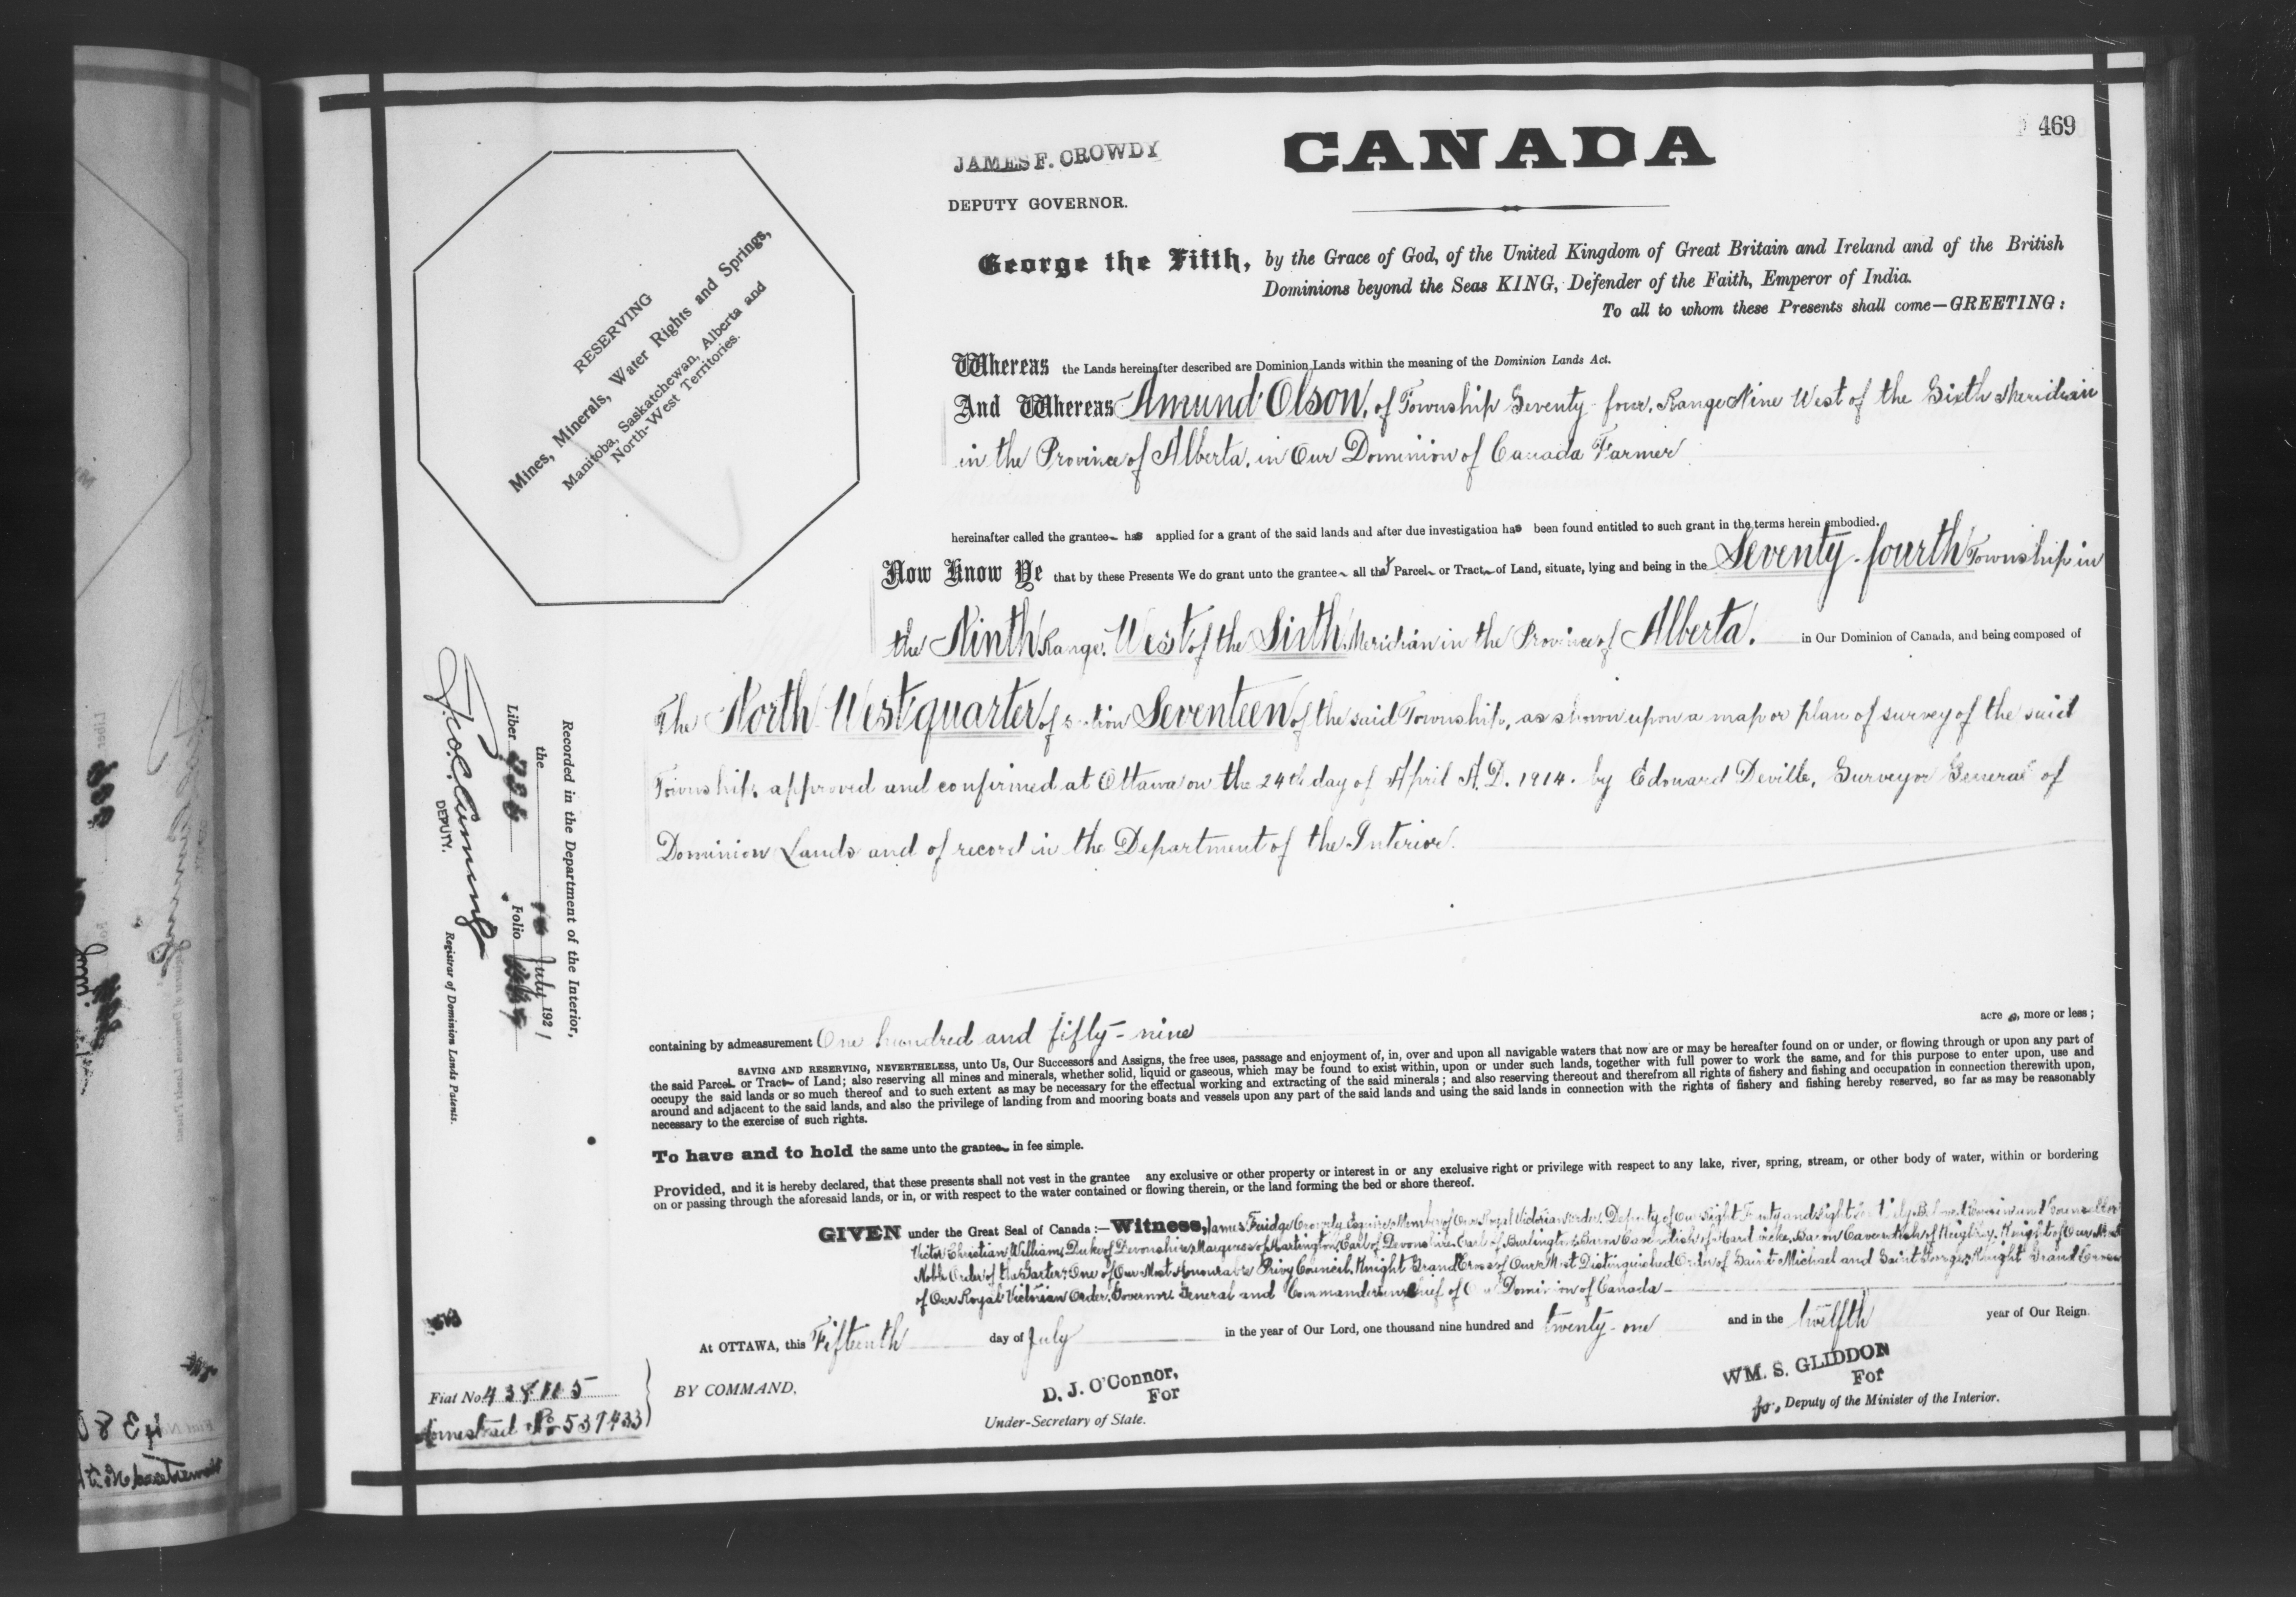 469
CANADA
JAMES F. CROWDY
DEPUTY GOVERNOR.
RESERVING
Mines, Minerals, Water Rights and Springs,
Manitoba, Saskatchewan, Alberta and
North-West Territories.
George the Fifth, by the Grace of God, of the United Kingdom of Great Britain and Ireland and of the British
Dominions beyond the Seas KING, Defender of the Faith, Emperor of India.
To all to whom these Presents shall come—GREETING:
Whereas the Lands hereinafter described are Dominion Lands within the meaning of the Dominion Lands Act.
And Whereas Amund Olson, of Township Seventy-four, Range Nine West of the Sixth Meridian
in the Province of Alberta, in Our Dominion of Canada Farmer
hereinafter called the grantee has applied for a grant of the said lands and after due investigation has been found entitled to such grant in the terms herein embodied.
Now Know Ye that by these Presents We do grant unto the grantee all that Parcel or Tract of Land, situate, lying and being in the Seventy-fourth Township in
the Ninth Range, West of the Sixth Meridian in the Province of Alberta, in Our Dominion of Canada, and being composed of
The North West quarter of section Seventeen of the said Township, as shown upon a map or plan of survey of the said
Township, approved and confirmed at Ottawa on the 24th day of April A.D. 1914. by Edouard Deville, Surveyor General of
Dominion Lands and of record in the Department of the Interior.
containing by admeasurement One hundred and fifty-nine acres, more or less;
SAVING AND RESERVING, NEVERTHELESS, unto Us, Our Successors and Assigns, the free uses, passage and enjoyment of, in, over and upon all navigable waters that now are or may be hereafter found on or under, or flowing through or upon any part of
the said Parcel or Tract of Land; also reserving all mines and minerals, whether solid, liquid or gaseous, which may be found to exist within, upon or under such lands, together with full power to work the same, and for this purpose to enter upon, use and
occupy the said lands or so much thereof and to such extent as may be necessary for the effectual working and extracting of the said minerals; and also reserving thereout and therefrom all rights of fishery and fishing and occupation in connection therewith upon,
around and adjacent to the said lands, and also the privilege of landing from and mooring boats and vessels upon any part of the said lands and using the said lands in connection with the rights of fishery and fishing hereby reserved, so far as may be reasonably
necessary to the exercise of such rights.
To have and to hold the same unto the grantee in fee simple.
Provided, and it is hereby declared, that these presents shall not vest in the grantee any exclusive or other property or interest in or any exclusive right or privilege with respect to any lake, river, spring, stream, or other body of water, within or bordering
on or passing through the aforesaid lands, or in, or with respect to the water contained or flowing therein, or the land forming the bed or shore thereof.
GIVEN under the Great Seal of Canada:—Witness, James Fuidge Crowdy, Esquire, Member of Our Royal Victorian Order, Deputy of Our Right Trusty and Right Entirely Beloved Cousin and Councillor
Victor Christian William, Duke of Devonshire, Marquess of Hartington, Earl of Devonshire, Earl of Burlington, Baron Cavendish of Hardwicke, Baron Cavendish of Keighley, Knight of Our Most
Noble Order of the Garter; One of Our Most Honourable Privy Council, Knight Grand Cross of Our Most Distinguished Order of Saint Michael and Saint George, Knight Grand Cross
of Our Royal Victorian Order, Governor General and Commander in Chief of Our Dominion of Canada
At OTTAWA, this Fifteenth day of July in the year of Our Lord, one thousand nine hundred and twenty-one and in the twelfth year of Our Reign.
BY COMMAND,
D. J. O'Connor,
For
Under-Secretary of State.
WM. S. GLIDDON
For
for, Deputy of the Minister of the Interior.
Recorded in the Department of the Interior,
the July 1921
Liber Folio
DEPUTY. Registrar of Dominion Lands Patents.
Fiat No. 438105
Homestead No 537433